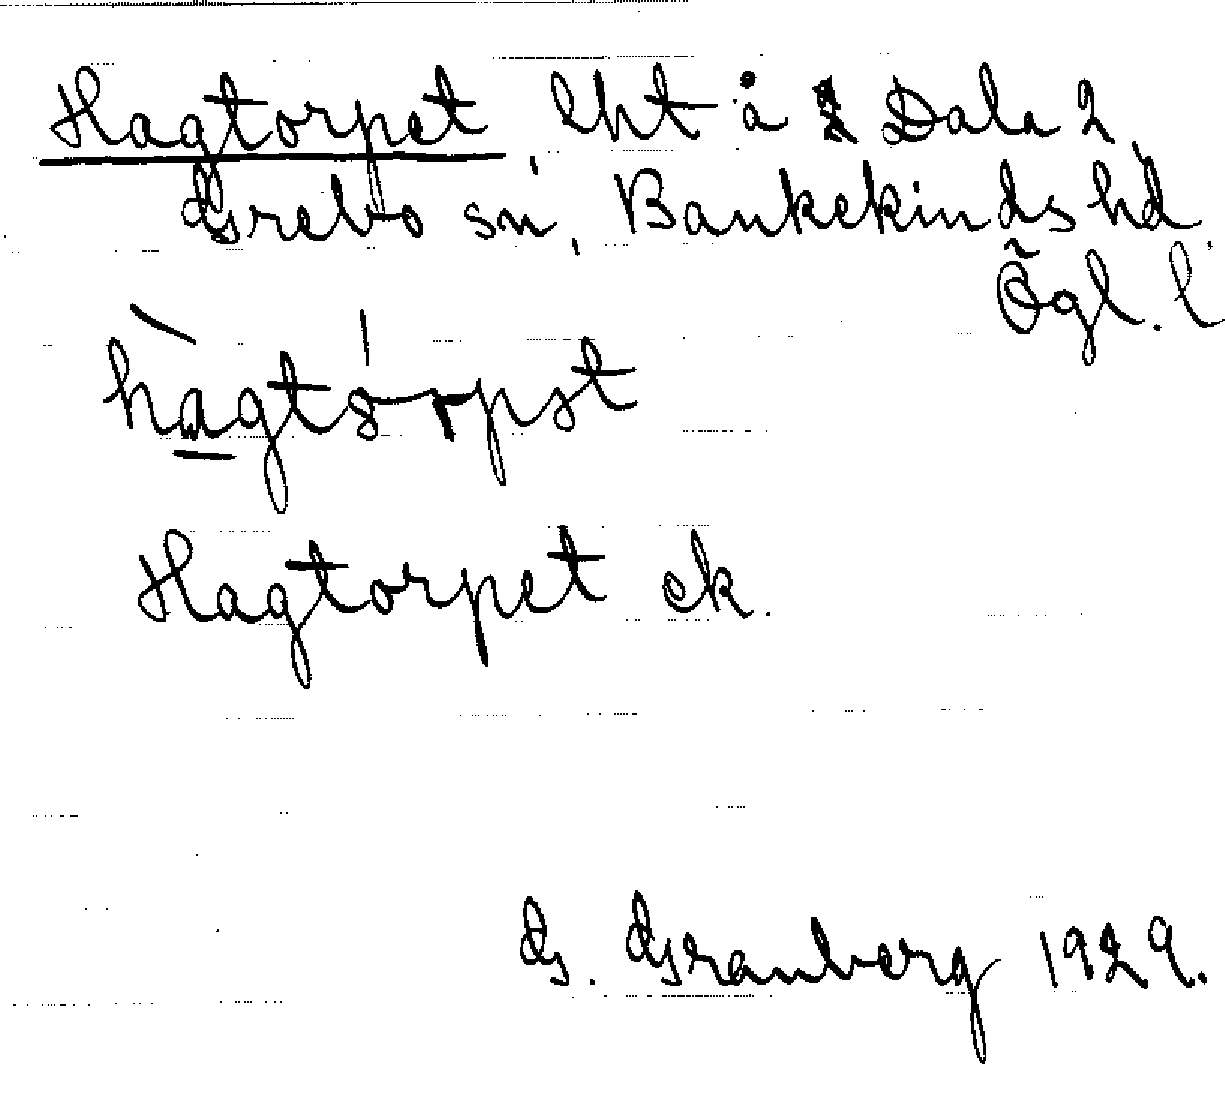 Hagtorpet, lht å Dala 2,
Grebo sn, Bankekinds hd.
Ögl. l
hàgtórpət
Hagtorpet ek.
G. Granberg 1929.